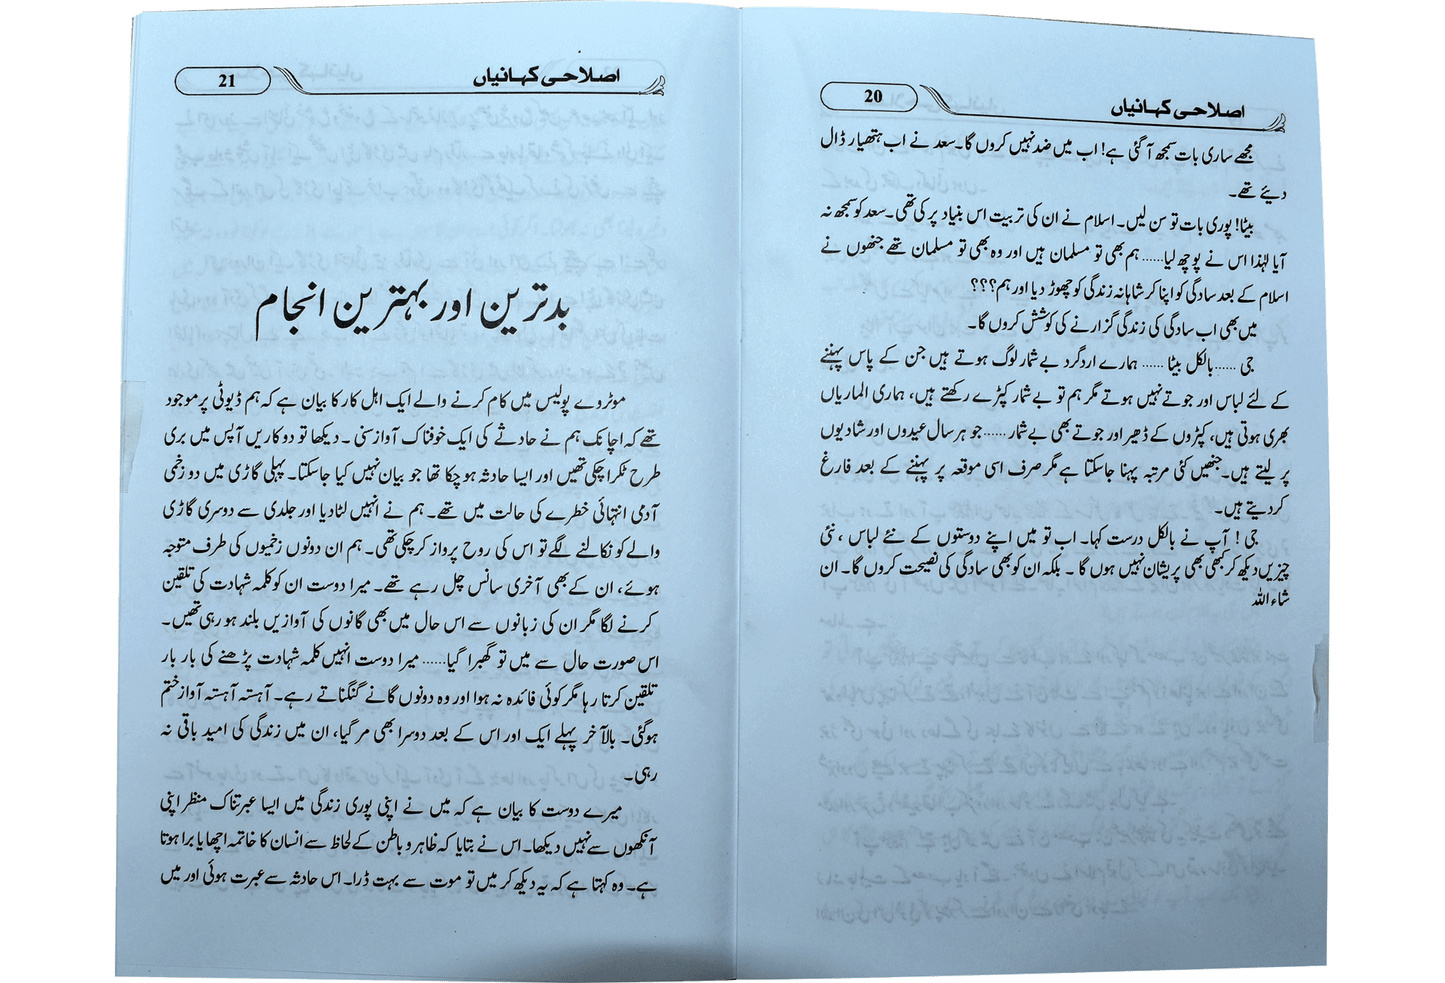 اصلاحی کہانیاں
20
مجھے ساری بات سمجھ آ گئی ہے! اب میں ضد نہیں کروں گا۔ سعد نے اب ہتھیار ڈال
دیئے تھے۔
بیٹا! پوری بات تو سن لیں۔ اسلام نے ان کی تربیت اس بنیاد پر کی تھی۔ سعد کو سمجھ نہ
آیا لہٰذا اس نے پوچھ لیا...... ہم بھی تو مسلمان ہیں اور وہ بھی تو مسلمان تھے جنھوں نے
اسلام کے بعد سادگی کو اپنا کر شاہانہ زندگی کو چھوڑ دیا اور ہم؟؟؟
میں بھی اب سادگی کی زندگی گزارنے کی کوشش کروں گا۔
جی ...... بالکل بیٹا ...... ہمارے اردگرد بے شمار لوگ ہوتے ہیں جن کے پاس پہننے
کے لئے لباس اور جوتے نہیں ہوتے مگر ہم تو بے شمار کپڑے رکھتے ہیں، ہماری الماریاں
بھری ہوتی ہیں، کپڑوں کے ڈھیر اور جوتے بھی بے شمار ...... جو ہر سال عیدوں اور شادیوں
پر لیتے ہیں۔ جنھیں کئی مرتبہ پہنا جا سکتا ہے مگر صرف اسی موقعہ پر پہننے کے بعد فارغ
کر دیتے ہیں۔
جی ! آپ نے بالکل درست کہا۔ اب تو میں اپنے دوستوں کے نئے لباس ، نئی
چیزیں دیکھ کر کبھی بھی پریشان نہیں ہوں گا ۔ بلکہ ان کو بھی سادگی کی نصیحت کروں گا ۔ ان
شاء اللہ
اصلاحی کہانیاں
21
بدترین اور بہترین انجام
موٹروے پولیس میں کام کرنے والے ایک اہل کار کا بیان ہے کہ ہم ڈیوٹی پر موجود
تھے کہ اچانک ہم نے حادثے کی ایک خوفناک آواز سنی ۔ دیکھا تو دو کاریں آپس میں بری
طرح ٹکرا چکی تھیں اور ایسا حادثہ ہو چکا تھا جو بیان نہیں کیا جا سکتا۔ پہلی گاڑی میں دو زخمی
آدمی انتہائی خطرے کی حالت میں تھے۔ ہم نے انہیں لٹا دیا اور جلدی سے دوسری گاڑی
والے کو نکالنے لگے تو اس کی روح پرواز کر چکی تھی۔ ہم ان دونوں زخمیوں کی طرف متوجہ
ہوئے، ان کے بھی آخری سانس چل رہے تھے۔ میرا دوست ان کو کلمہ شہادت کی تلقین
کرنے لگا مگر ان کی زبانوں سے اس حال میں بھی گانوں کی آوازیں بلند ہو رہی تھیں۔
اس صورت حال سے میں تو گھبرا گیا...... میرا دوست انہیں کلمہ شہادت پڑھنے کی بار بار
تلقین کرتا رہا مگر کوئی فائدہ نہ ہوا اور وہ دونوں گانے گنگناتے رہے۔ آہستہ آہستہ آواز ختم
ہو گئی۔ بالآخر پہلے ایک اور اس کے بعد دوسرا بھی مر گیا، ان میں زندگی کی امید باقی نہ
رہی۔
میرے دوست کا بیان ہے کہ میں نے اپنی پوری زندگی میں ایسا عبرتناک منظر اپنی
آنکھوں سے نہیں دیکھا۔ اس نے بتایا کہ ظاہر و باطن کے لحاظ سے انسان کا خاتمہ اچھا یا برا ہوتا
ہے۔ وہ کہتا ہے کہ یہ دیکھ کر میں تو موت سے بہت ڈرا۔ اس حادثہ سے عبرت ہوئی اور میں